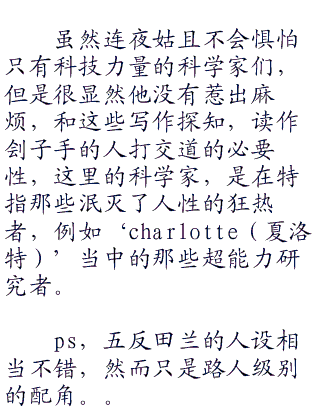 虽然连夜姑且不会惧怕
只有科技力量的科学家们，
但是很显然他没有惹出麻
烦，和这些写作探知，读作
刽子手的人打交道的必要
性，这里的科学家，是在特
指那些泯灭了人性的狂热
者，例如‘charlotte（夏洛
特）’当中的那些超能力研
究者。
ps，五反田兰的人设相
当不错，然而只是路人级别
的配角。。